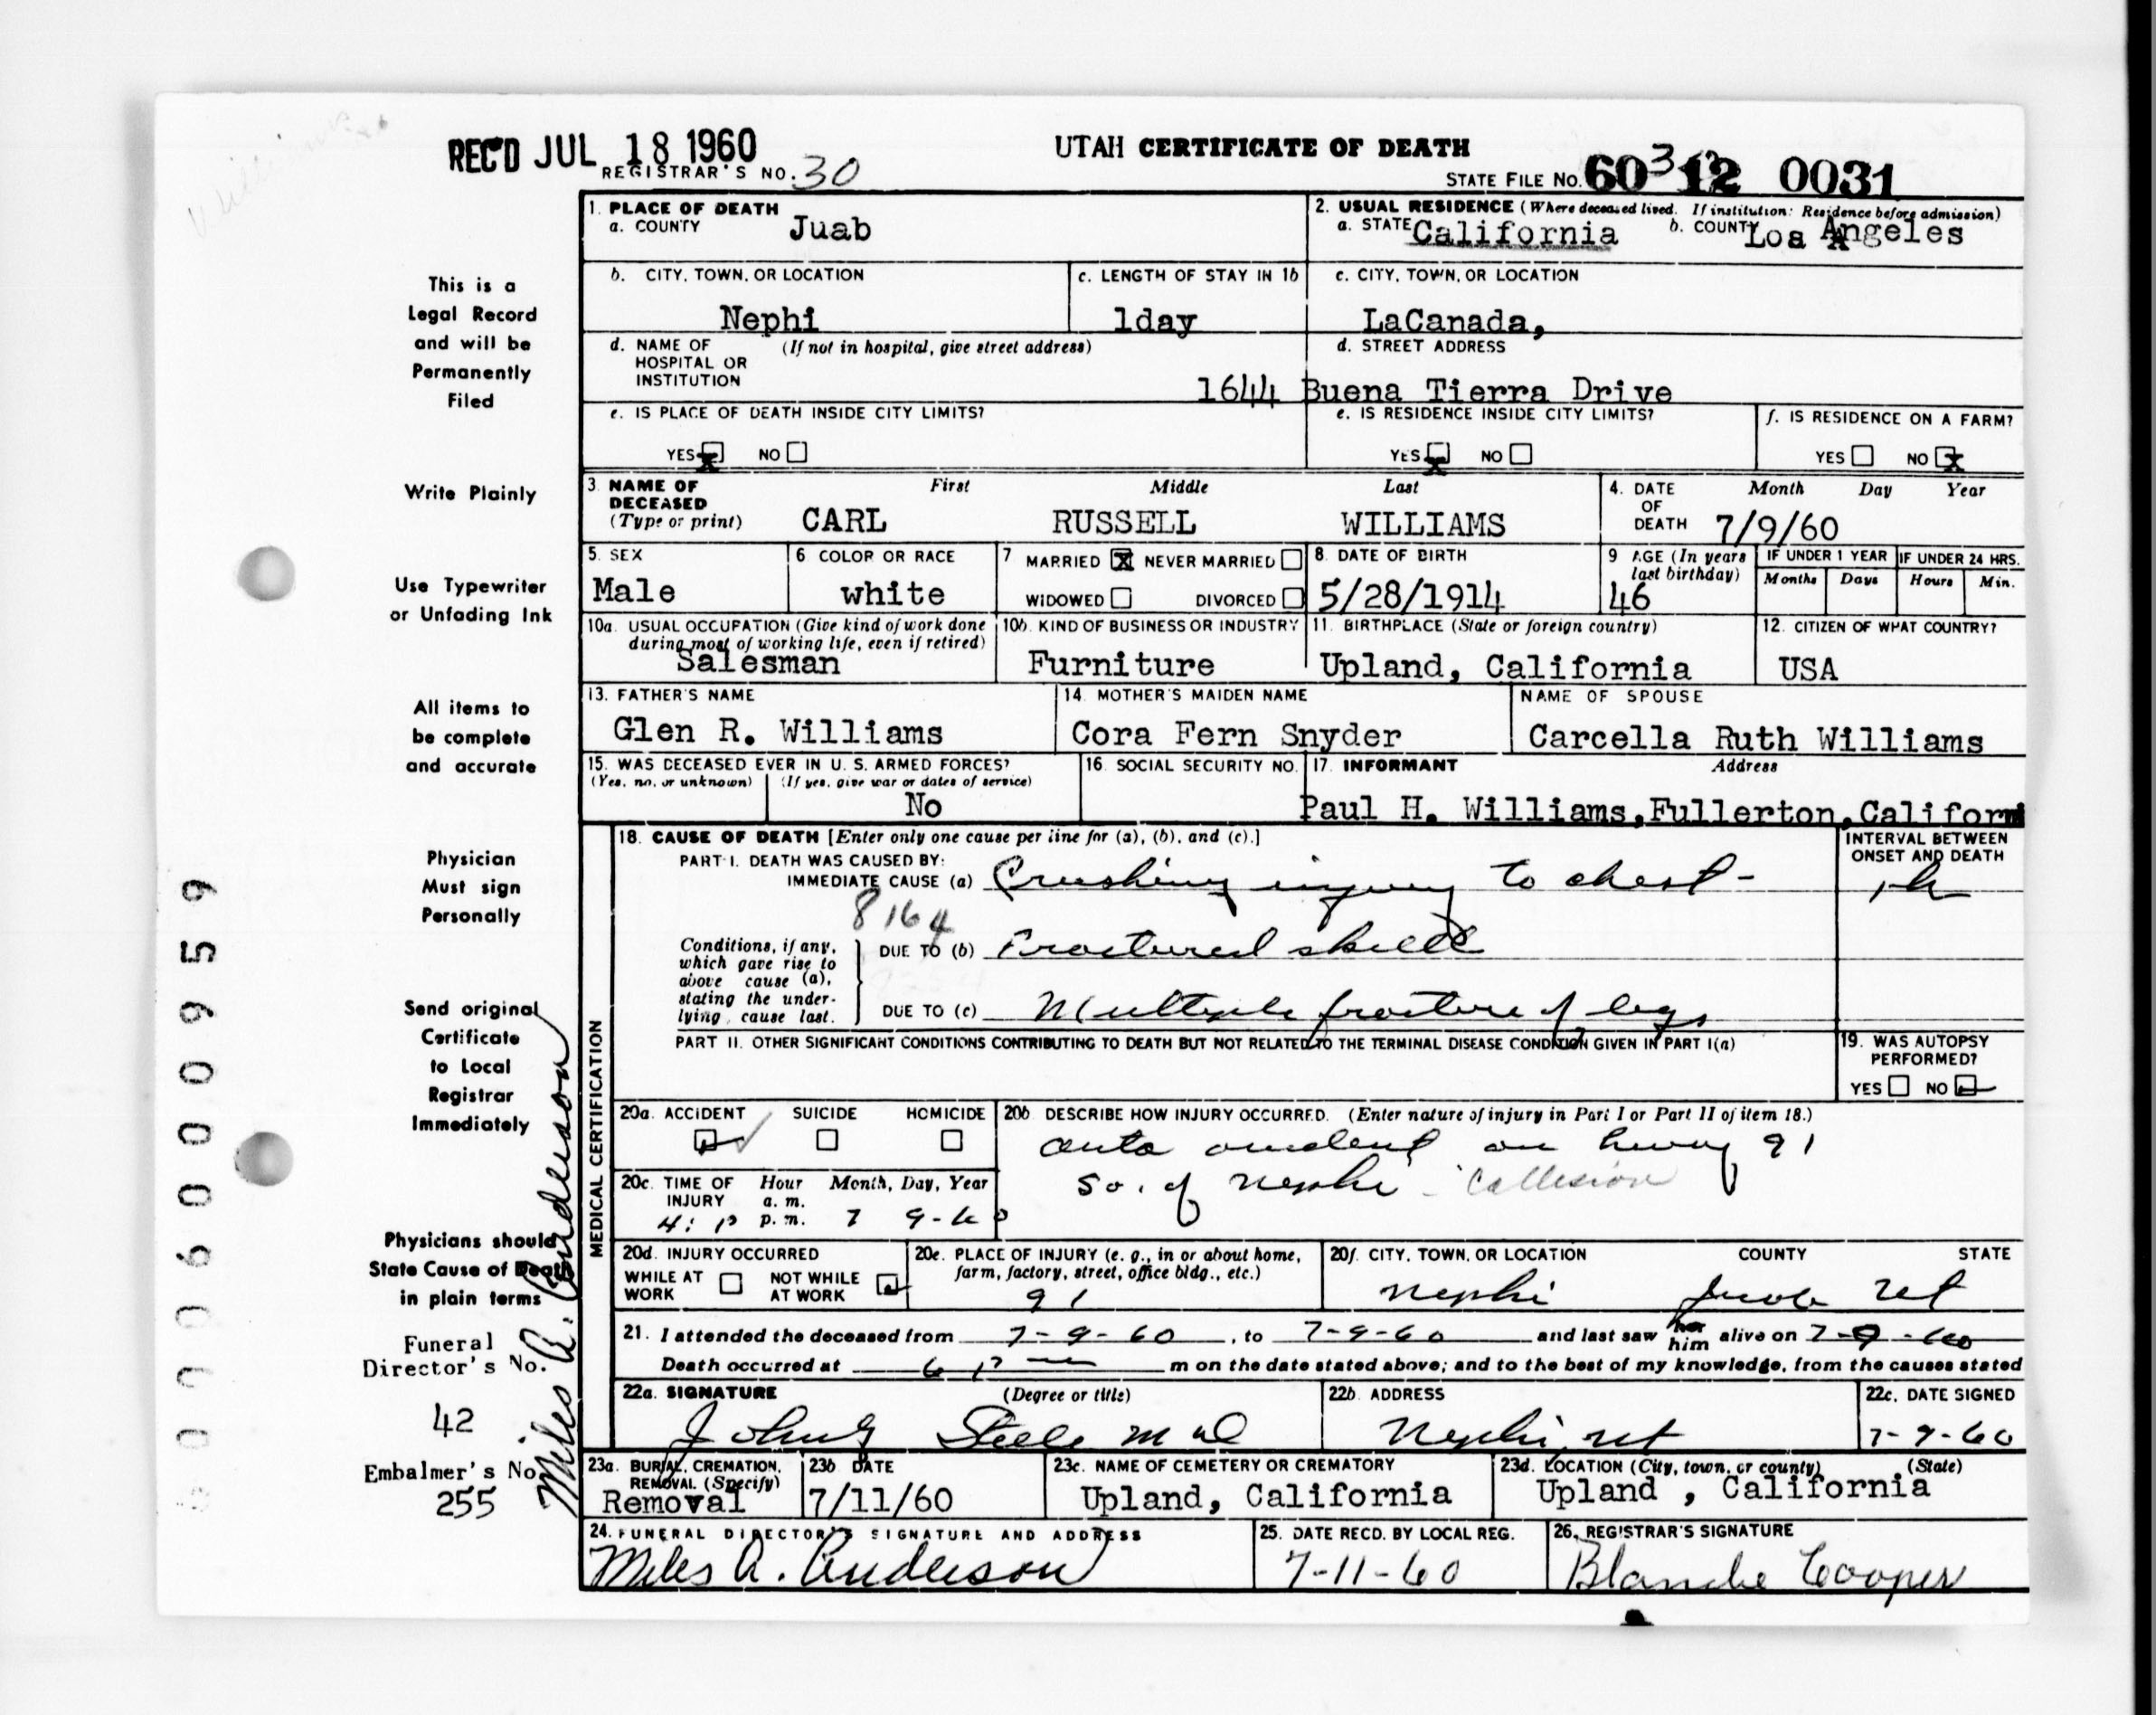 REC'D JUL 18 1960
REGISTRAR'S NO. 30
UTAH CERTIFICATE OF DEATH
STATE FILE NO. 60 3 12 0031
1. PLACE OF DEATH
a. COUNTY Juab
2. USUAL RESIDENCE (Where deceased lived. If institution: Residence before admission)
a. STATE California b. COUNTY Los Angeles
b. CITY, TOWN, OR LOCATION
Nephi
c. LENGTH OF STAY IN 1b
1day
c. CITY, TOWN, OR LOCATION
LaCanada,
d. NAME OF HOSPITAL OR INSTITUTION (If not in hospital, give street address)
d. STREET ADDRESS
1644 Buena Tierra Drive
e. IS PLACE OF DEATH INSIDE CITY LIMITS?
YES X NO
e. IS RESIDENCE INSIDE CITY LIMITS?
YES X NO
f. IS RESIDENCE ON A FARM?
YES NO X
3. NAME OF DECEASED (Type or print) First Middle Last
CARL RUSSELL WILLIAMS
4. DATE OF DEATH Month Day Year
7/9/60
5. SEX
Male
6 COLOR OR RACE
white
7 MARRIED X NEVER MARRIED
WIDOWED DIVORCED
8. DATE OF BIRTH
5/28/1914
9 AGE (In years last birthday)
46
IF UNDER 1 YEAR IF UNDER 24 HRS.
Months Days Hours Min.
10a. USUAL OCCUPATION (Give kind of work done during most of working life, even if retired)
Salesman
10b. KIND OF BUSINESS OR INDUSTRY
Furniture
11. BIRTHPLACE (State or foreign country)
Upland, California
12. CITIZEN OF WHAT COUNTRY?
USA
13. FATHER'S NAME
Glen R. Williams
14. MOTHER'S MAIDEN NAME
Cora Fern Snyder
NAME OF SPOUSE
Carcella Ruth Williams
15. WAS DECEASED EVER IN U. S. ARMED FORCES?
(Yes, no, or unknown) (If yes, give war or dates of service)
No
16. SOCIAL SECURITY NO.
17. INFORMANT Address
Paul H. Williams, Fullerton, Californi
18. CAUSE OF DEATH [Enter only one cause per line for (a), (b), and (c).]
PART I. DEATH WAS CAUSED BY:
IMMEDIATE CAUSE (a) Crushing injury to chest -
INTERVAL BETWEEN ONSET AND DEATH
8164
Conditions, if any, which gave rise to above cause (a), stating the underlying cause last.
DUE TO (b) Fractured skull
DUE TO (c) Multiple fracture of legs
PART II. OTHER SIGNIFICANT CONDITIONS CONTRIBUTING TO DEATH BUT NOT RELATED TO THE TERMINAL DISEASE CONDITION GIVEN IN PART I(a)
19. WAS AUTOPSY PERFORMED?
YES NO
20a. ACCIDENT SUICIDE HOMICIDE
20b DESCRIBE HOW INJURY OCCURRED. (Enter nature of injury in Part I or Part II of item 18.)
auto accident on hwy 91
so. of Nephi - Collision
20c. TIME OF INJURY Hour Month, Day, Year
a. m.
4: P p. m. 7 9-60
20d. INJURY OCCURRED
WHILE AT WORK NOT WHILE AT WORK
20e. PLACE OF INJURY (e. g., in or about home, farm, factory, street, office bldg., etc.)
91
20f. CITY, TOWN, OR LOCATION COUNTY STATE
Nephi Juab Ut
21. I attended the deceased from 7-9-60, to 7-9-60 and last saw her him alive on 7-9-60
Death occurred at 6 P m on the date stated above; and to the best of my knowledge, from the causes stated
22a. SIGNATURE (Degree or title)
John G Steele MD
22b. ADDRESS
Nephi, Ut
22c. DATE SIGNED
7-9-60
23a. BURIAL, CREMATION, REMOVAL (Specify)
Removal
23b DATE
7/11/60
23c. NAME OF CEMETERY OR CREMATORY
Upland, California
23d. LOCATION (City, town, or county) (State)
Upland , California
24. FUNERAL DIRECTOR'S SIGNATURE AND ADDRESS
Miles A. Anderson
25. DATE RECD. BY LOCAL REG.
7-11-60
26. REGISTRAR'S SIGNATURE
Blanche Cooper
MEDICAL CERTIFICATION
This is a
Legal Record
and will be
Permanently
Filed
Write Plainly
Use Typewriter
or Unfading Ink
All items to
be complete
and accurate
Physician
Must sign
Personally
Send original
Certificate
to Local
Registrar
Immediately
Physicians should
State Cause of Death
in plain terms
Funeral
Director's No.
42
Embalmer's No
255
Miles A. Anderson